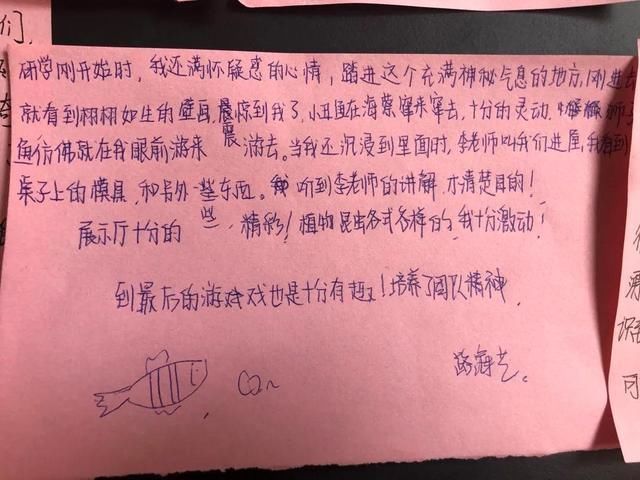 研学刚开始时，我还满怀疑惑的心情，踏进这个充满神秘气息的地方，刚进去
就看到栩栩如生的壁画，震惊到我了，小丑鱼在海藻窜来窜去，十分的灵动，狮子
鱼彷佛就在我眼前游来游去。当我还沉浸到里面时，李老师叫我们进屋，我看到
桌子上的模具，和另外一些东西。我听到李老师的讲解，才清楚目的！
展示厅十分的精彩！植物昆虫各式各样的，我十分激动！
到最后的游戏也是十分有趣！培养了团队精神。
们，
可